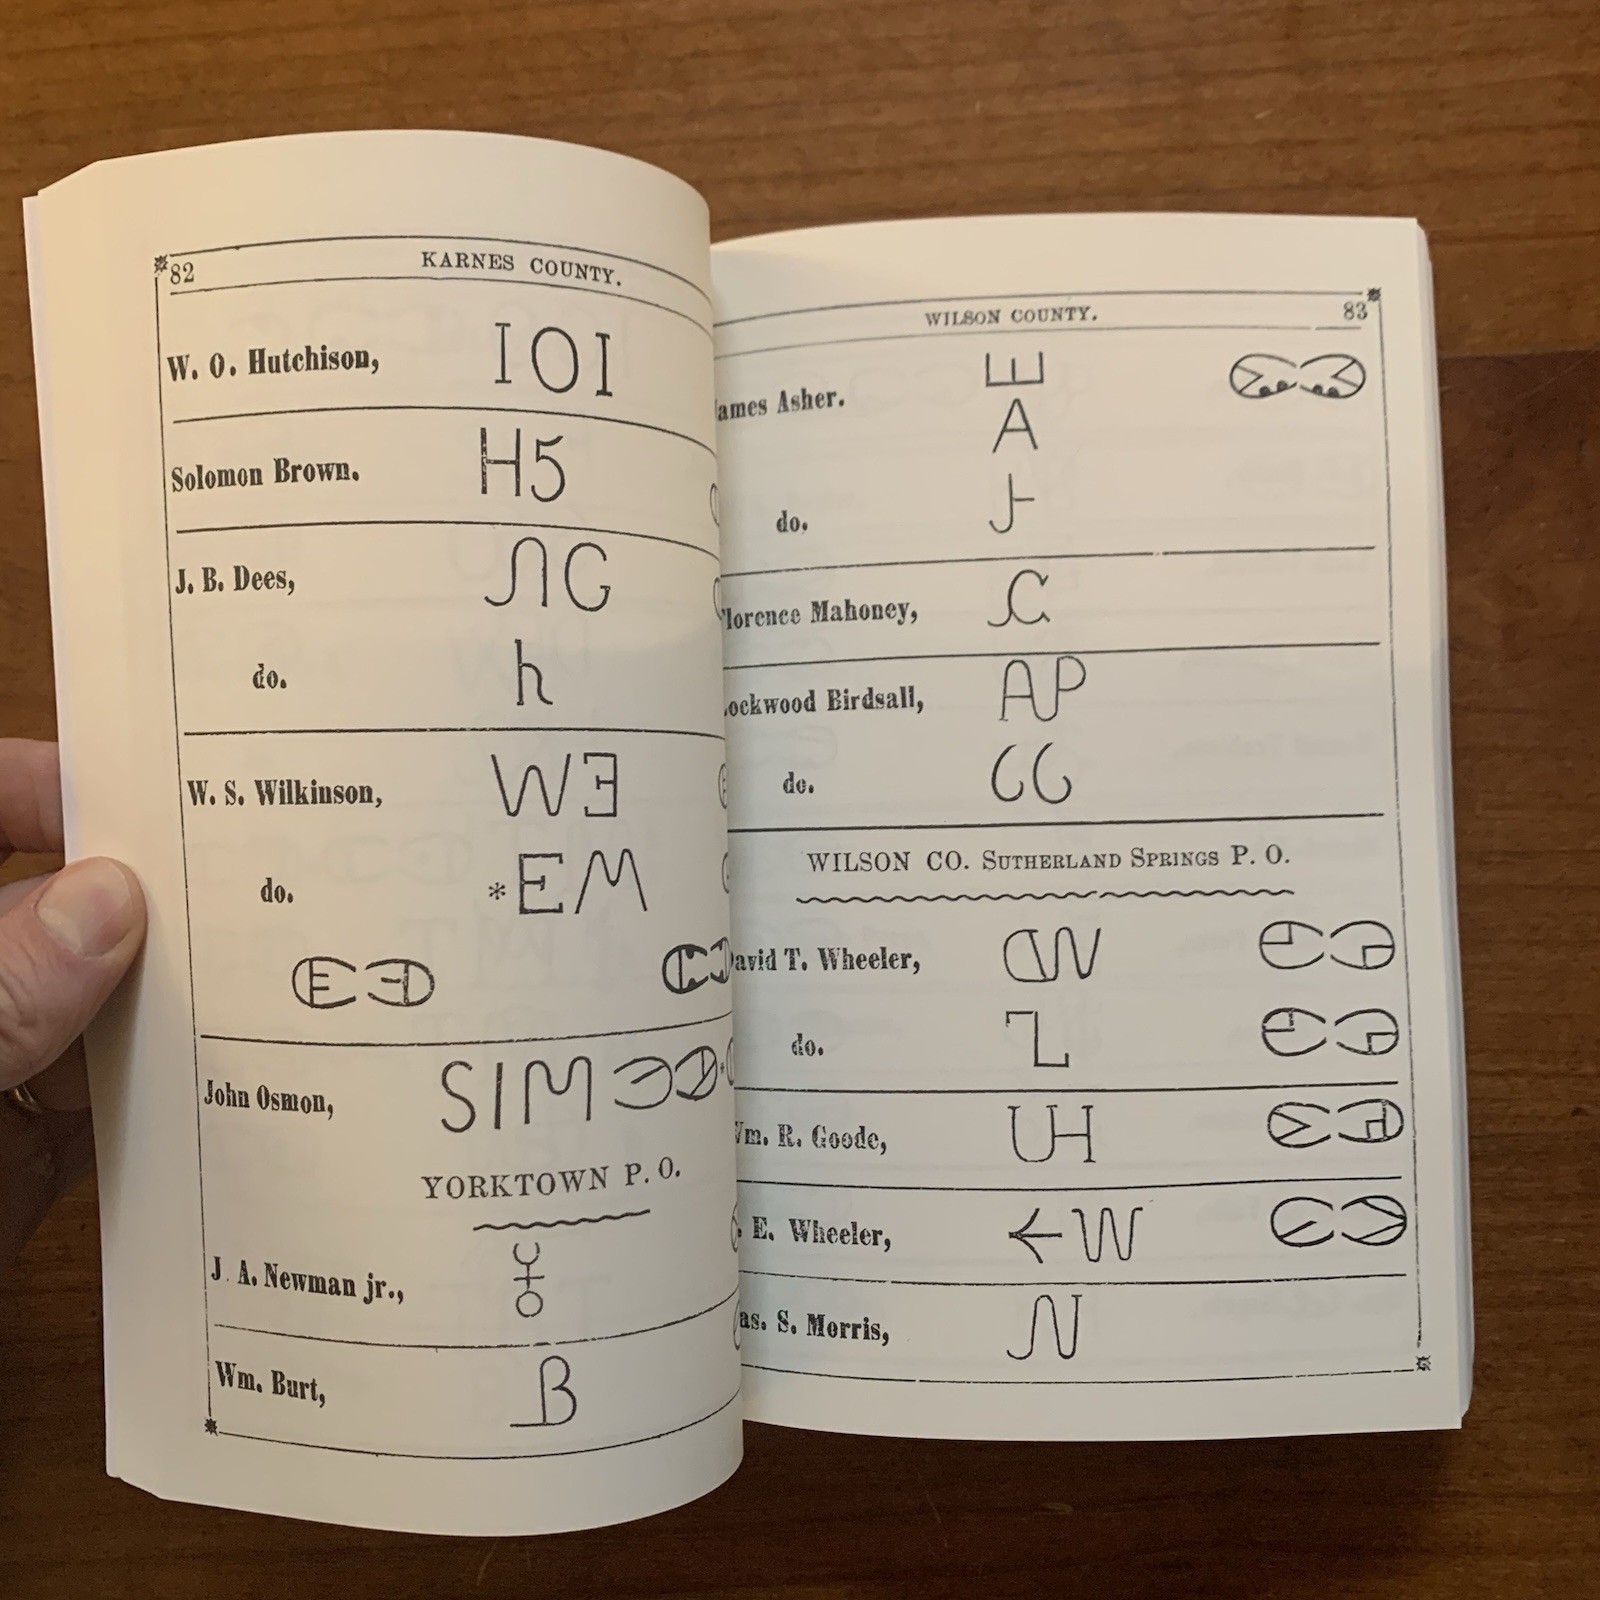 82
KARNES COUNTY.
W. O. Hutchison, IOI
Solomon Brown. H5
J. B. Dees,
do. h
W. S. Wilkinson,
do. *EM
John Osmon,
YORKTOWN P. O.
J. A. Newman jr.,
Wm. Burt,
WILSON COUNTY.
83
ames Asher.
A
do.
lorence Mahoney,
ockwood Birdsall, AP
do.
WILSON CO. SUTHERLAND SPRINGS P. O.
avid T. Wheeler,
do.
m. R. Goode, UH
E. Wheeler,
as. S. Morris, N